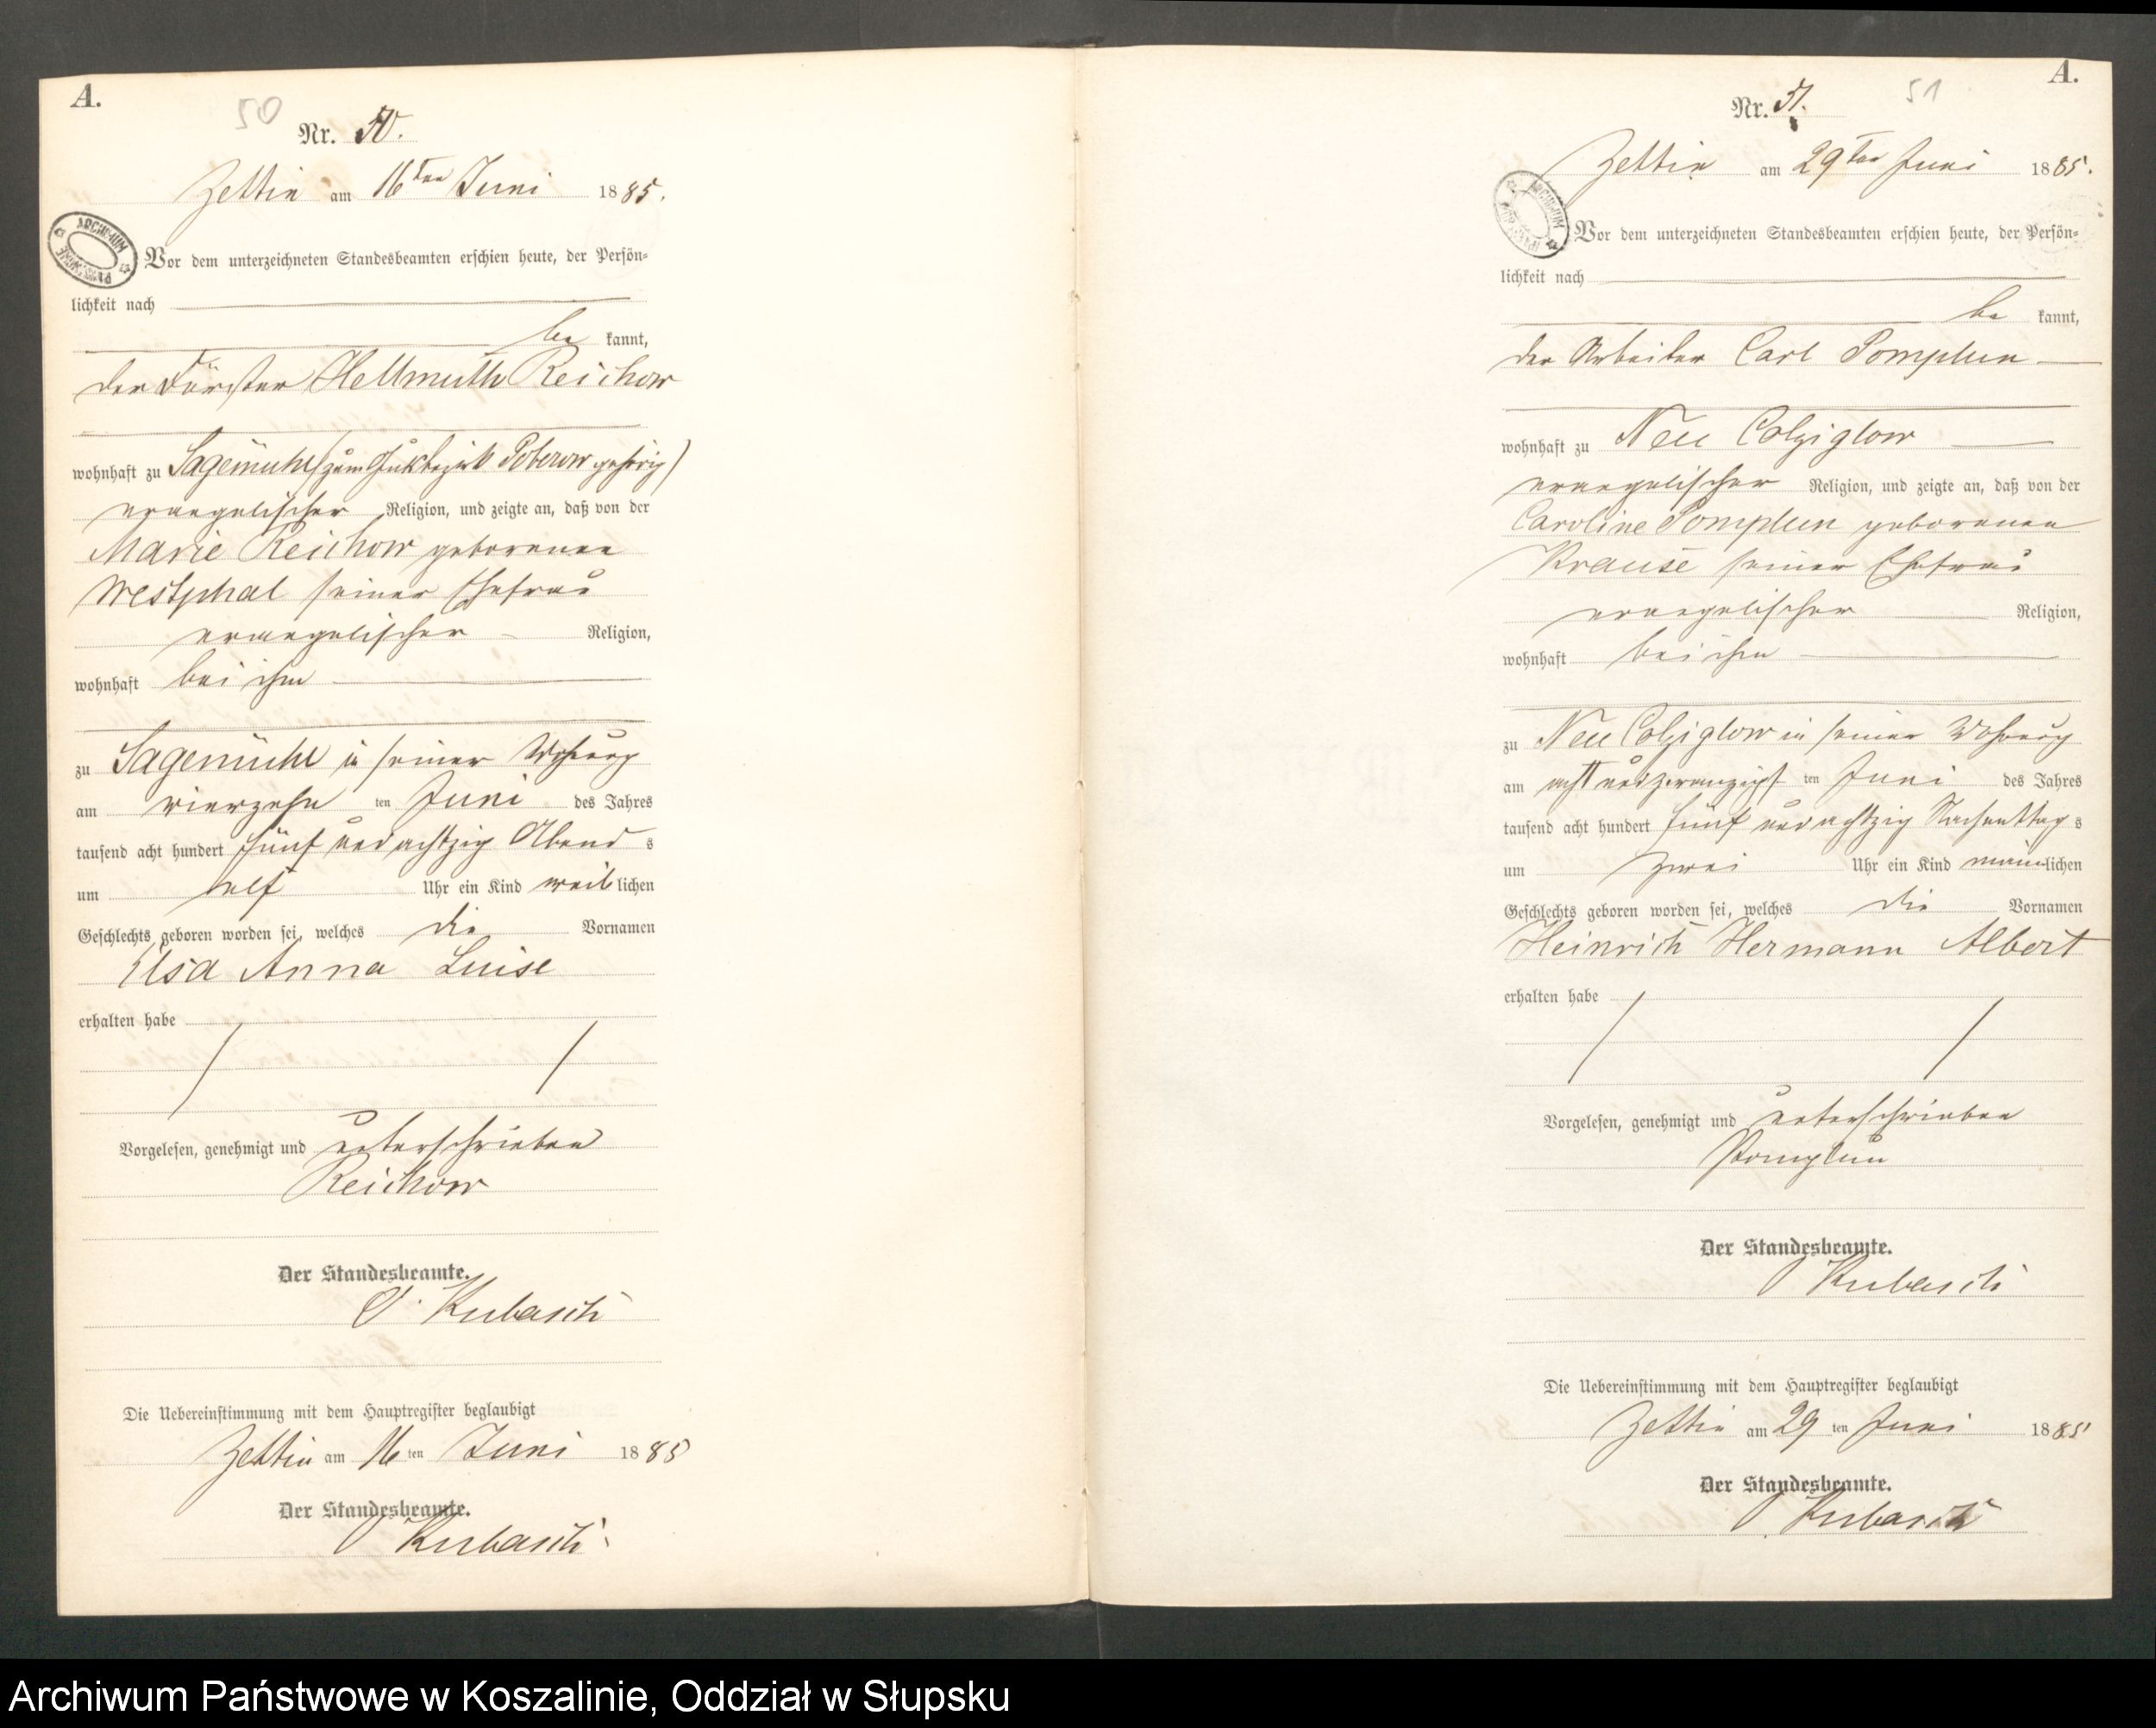 A.
50
Nr. 50.
Zettin am 16ten Juni 1885.
ARCHIWUM
Vor dem unterzeichneten Standesbeamten erschien heute, der Persön=
lichkeit nach
be kannt,
der Förster Hellmuth Reichow
wohnhaft zu Sagemühl (zum Gutsbezirk Poberow gehörig)
evangelischer Religion, und zeigte an, daß von der
Marie Reichow geborenen
Westphal seiner Ehefrau
evangelischer Religion,
wohnhaft bei ihm
zu Sagemühl in seiner Wohnung
am vierzehn ten Juni des Jahres
tausend acht hundert fünf und achtzig Abend s
um elf Uhr ein Kind weib lichen
Geschlechts geboren worden sei, welches die Vornamen
Elsa Anna Luise
erhalten habe
Vorgelesen, genehmigt und unterschrieben
Reichow
Der Standesbeamte.
Kubasch
Die Uebereinstimmung mit dem Hauptregister beglaubigt
Zettin am 16 ten Juni 1885
Der Standesbeamte.
Kubasch
A.
51
Nr. 51.
Zettin am 29ten Juni 1885.
ARCHIWUM
Vor dem unterzeichneten Standesbeamten erschien heute, der Persön=
lichkeit nach
be kannt,
der Arbeiter Carl Pomplun
wohnhaft zu Neu Colziglow
evangelischer Religion, und zeigte an, daß von der
Caroline Pomplun geborenen
Krause seiner Ehefrau
evangelischer Religion,
wohnhaft bei ihm
zu Neu Colziglow in seiner Wohnung
am acht und zwanzigst ten Juni des Jahres
tausend acht hundert fünf und achtzig Nachmittag s
um zwei Uhr ein Kind männlichen
Geschlechts geboren worden sei, welches die Vornamen
Heinrich Hermann Albert
erhalten habe
Vorgelesen, genehmigt und unterschrieben
Pomplun
Der Standesbeamte.
Kubasch
Die Uebereinstimmung mit dem Hauptregister beglaubigt
Zettin am 29 ten Juni 1885
Der Standesbeamte.
Kubasch
Archiwum Państwowe w Koszalinie, Oddział w Słupsku